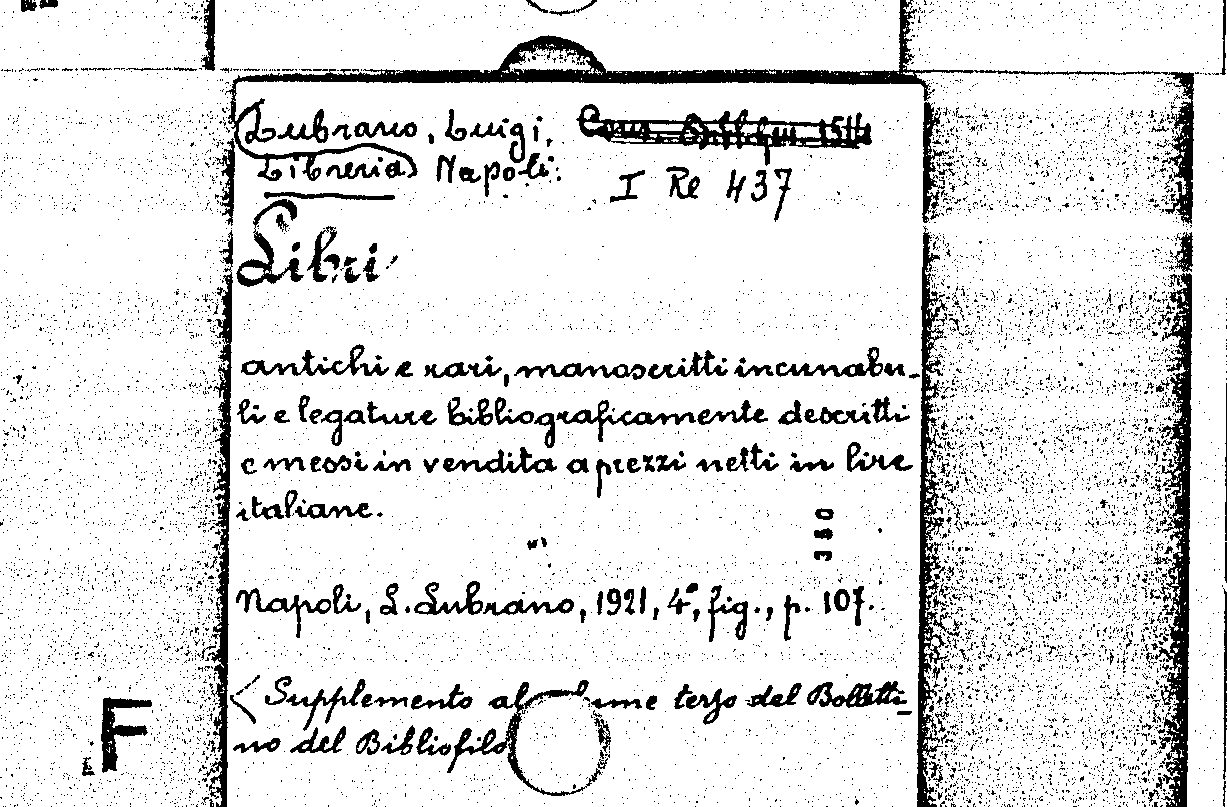 Lubrano, Luigi,
Libreria Napoli.
I Re 437
Libri
antichi e rari, manoscritti incunabu-
li e legature bibliograficamente descritti
e messi in vendita a prezzi netti in lire
italiane.
380
Napoli, L. Lubrano, 1921, 4°, fig., p. 107.
Supplemento al terzo del Bolletti-
no del Bibliofilo
F